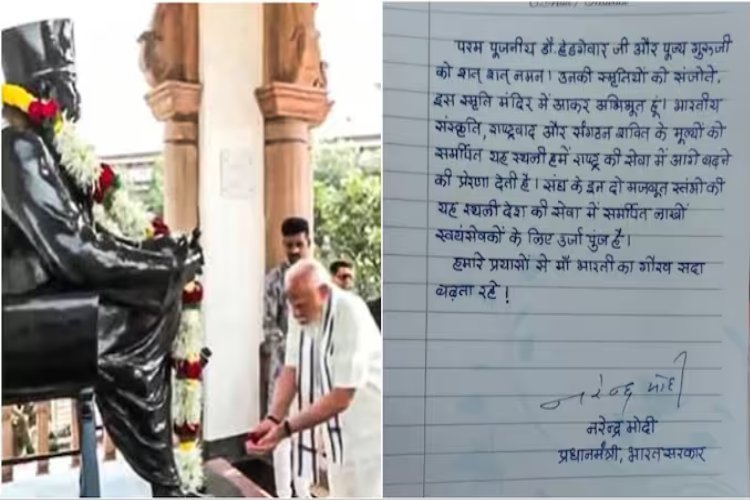 परम पूजनीय डॉ. हेडगेवार जी और पूज्य गुरुजी
को शत् शत् नमन। उनकी स्मृतियों को संजोते,
इस स्मृति मंदिर में आकर अभिभूत हूं। भारतीय
संस्कृति, राष्ट्रवाद और संगठन शक्ति के मूल्यों को
समर्पित यह स्थली हमें राष्ट्र की सेवा में आगे बढ़ने
की प्रेरणा देती है। संघ के इन दो मजबूत स्तंभों की
यह स्थली देश की सेवा में समर्पित लाखों
स्वयंसेवकों के लिए उर्जा पुंज है।
हमारे प्रयासों से माँ भारती का गौरव सदा
बढ़ता रहे!
नरेन्द्र मोदी
नरेन्द्र मोदी
प्रधानमंत्री, भारत सरकार